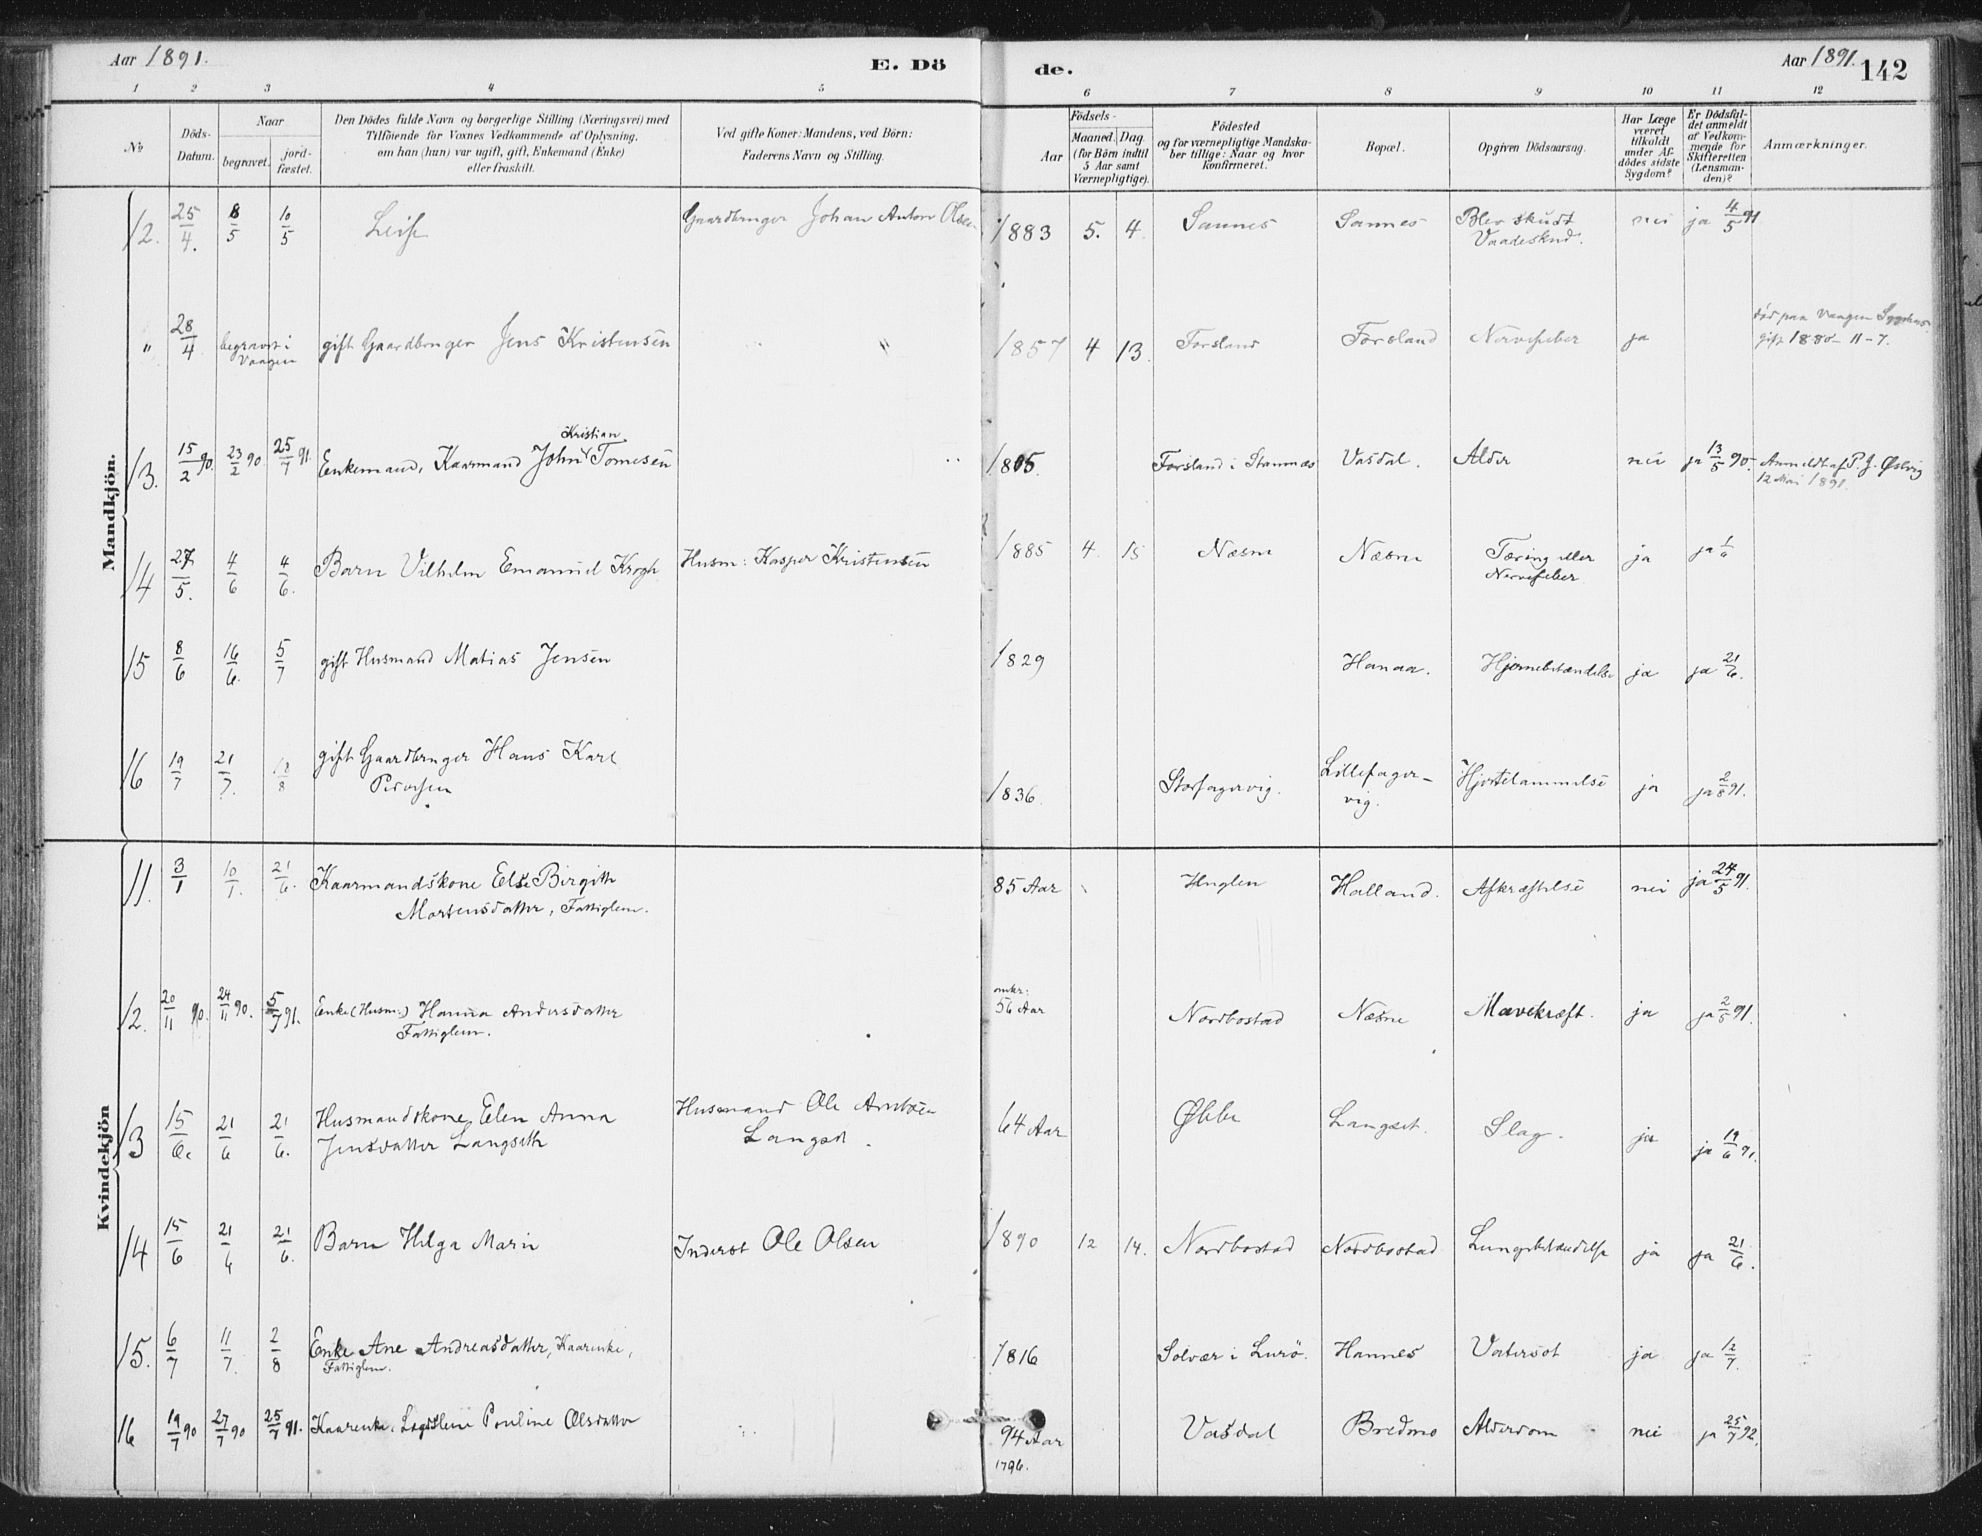 Aar 1891. E. Dö de. Aar 1891. 142
1 2 3 4 5 6 7 8 9 10 11 12
№
Döds-
Datum.
Naar
begravet.
jord-
fæstet.
Den Dödes fulde Navn og borgerlige Stilling (Næringsvei) med
Tilföiende for Voxnes Vedkommende af Oplysning,
om han (hun) var ugift, gift, Enkemand (Enke)
eller fraskilt.
Ved gifte Koner: Mandens, ved Börn:
Faderens Navn og Stilling.
Födsels-
Aar
Maaned. Dag.
(for Börn indtil
5 Aar samt
Værnepligtige).
Födested
og for værnepligtige Mandska-
ber tillige: Naar og hvor
konfirmeret.
Bopæl.
Opgiven Dödsaarsag.
Har Læge
været
tilkaldt
under Af-
dödes sidste
Sygdom?
Er Dödsfal-
det anmeldt
af Vedkom-
mende for
Skifteretten
(Lensman-
den)?
Anmærkninger.
Mandkjön.
12. 25/4. 8/5 10/5 Leif Gaardbruger Johan Anton Olsen 1883 5. 4. Sannes Sannes Blev skudt nei ja 4/5 91
Vaadeskud.
" 28/4 begravet i Vaagen gift Gaardbruger Jens Kristensen " 1857 4 13. Forsland Forsland Nervefeber ja død paa Vaagen Sygehus
gift 1880 - 11-7.
Kristian
13. 15/2 90. 23/2 90 25/7 91. Enkemand, Kaarmand John Tomesen 1805. Forsland i Stamnæs Vasdal. Alder nei ja 13/5 90. Anmeldt af P. J. Øslvig
12 Mai 1891.
14 27/5. 4/6 4/6. Barn Vilhelm Emanuel Krogh Husm: Kasper Kristensen 1885 4. 15 Næsne Næsne Tæring eller ja ja 1/6
Nervefeber
15 8/6 16/6. 5/7 gift Husmand Matias Jensen 1829 Hanaa. Hjernebetændelse ja ja 21/6.
16 19/7 21/7. 18/8 gift Gaardbruger Hans Karl
Pedersen 1836. Storfagervig. Lillefager-
vig. Hjertelammelse ja ja 2/8 91.
Kvindekjön
11. 3/1 10/1. 21/6. Kaarmandskone Else Birgith
Mortensdatter, Fattiglem. 85 Aar Huglen Halland. Afkræftelse nei ja 24/5 91.
12. 20/11 90. 24/11 90 5/7 91. Enke (Husm.) Hanna Andersdatter
Fattiglem. omkr:
56 Aar Nordbostad Næsne Mavekræft. ja ja 2/5 91.
13 15/6. 21/6 21/6. Husmandskone Elen Anna
Jensdatter Langseth Husmand Ole Arntsen
Langset. 64 Aar Økke Langset. Slag. ja ja 19/6 91.
14 15/6 21/6 21/6. Barn Helga Marie Inderst Ole Olsen 1890 12 14. Nordbostad Nordbostad Lungebetændelse ja ja 21/6.
15. 6/7 11/7. 2/8 Enke Ane Andreasdatter, Kaarenke,
Fattiglem. 1816 Solvær i Lurö. Hannes Vatersot ja ja 12/7.
16 19/7 90 27/7 90 25/7 91. Kaarenke, Legdslem Pouline Olsdatter 94 Aar
1796. Vasdal Bredmo Alderdom nei ja 25/7 92.